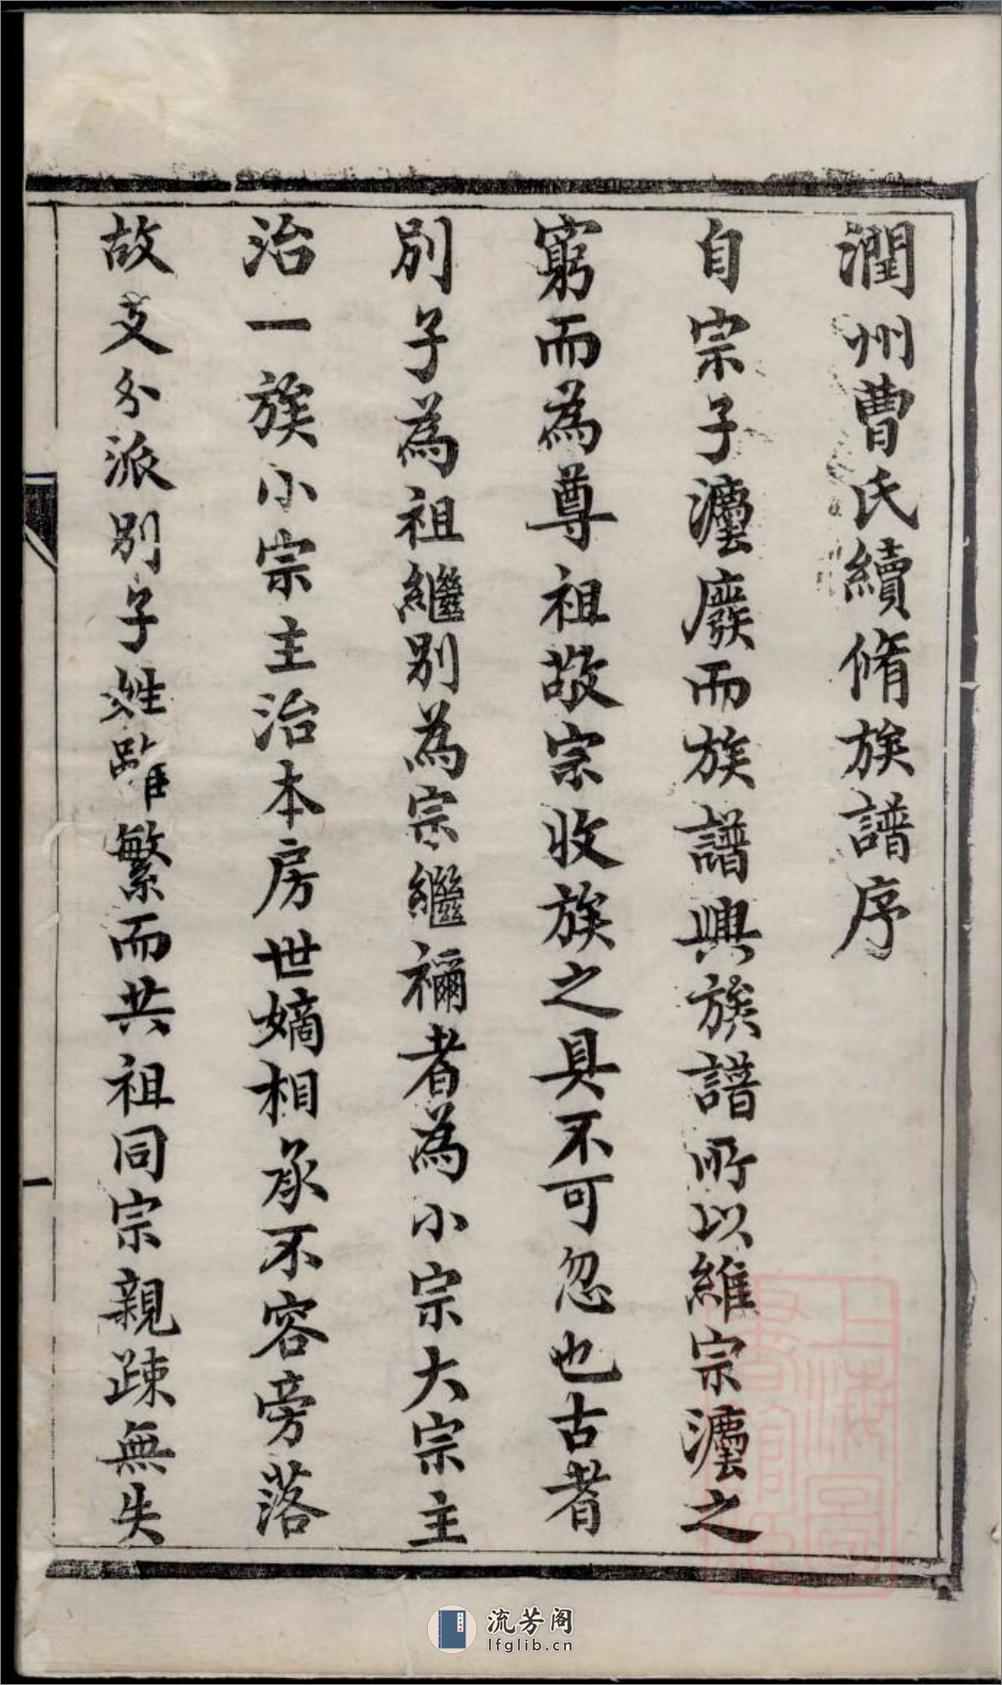 潤州曹氏續脩族譜序
自宗子灋廢而族譜興族譜所以維宗灋之
窮而為尊祖敬宗收族之具不可忽也古者
別子為祖繼別為宗繼禰者為小宗大宗主
治一族小宗主治本房世嫡相承不容旁落
故支分派別子姓雖繁而共祖同宗親疎無失
一
上海圖書館藏
流芳阁
lfglib.cn